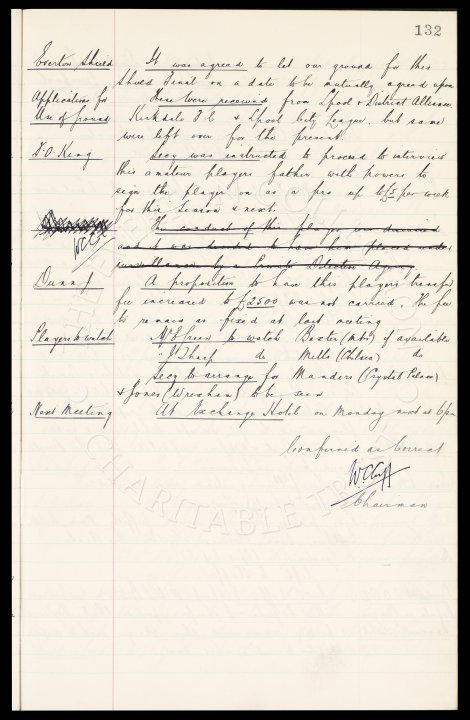 132
Everton Shield It was agreed to let our ground for this
Shield Final on a date to be mutually agreed upon
Applications for These were received from Lpool & District Alliance,
Use of ground Kirkdale F.C & Lpool City League. but same
were left over for the present.
Secy was instructed to proceed to interview
this amateur players father with powers to
sign the player on as a pro up to £5 per week
for this season & next.
The conduct of this player was discussed
and it was decided to have him placed under
surveillance by a Private Detective Agency
WCC
Dunn J A proposition to have this players transfer
fee increased to £2500 was not carried, the fee
to remain as fixed at last meeting
Players to watch Mr E Green to watch Baxter (Mbro) if available
" J Sharp do Mills (Chelsea) do
Secy to arrange for Manders (Crystal Palace)
& Jones (Wrexham) to be seen
Next Meeting At Exchange Hotel on Monday next at 6pm
Confirmed as Correct
W.C. Cuff
Chairman
CHARITABLE